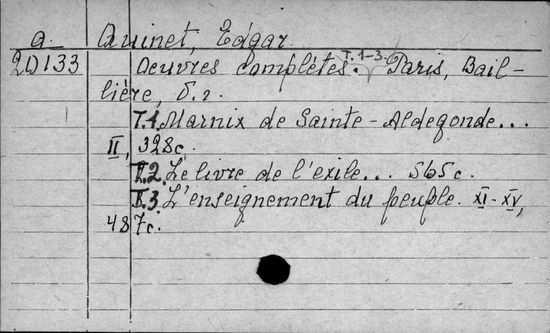 a Quinet, Edgar.
2D133 Oeuvres complètes. T.1-3. Paris, Bail-
lière, б.г.
T.1. Marnix de Sainte-Aldegonde...
II, 328c.
T.2. Le livre de l'exile... 565c.
T.3. L'enseignement du peuple. XI-XV,
487c.